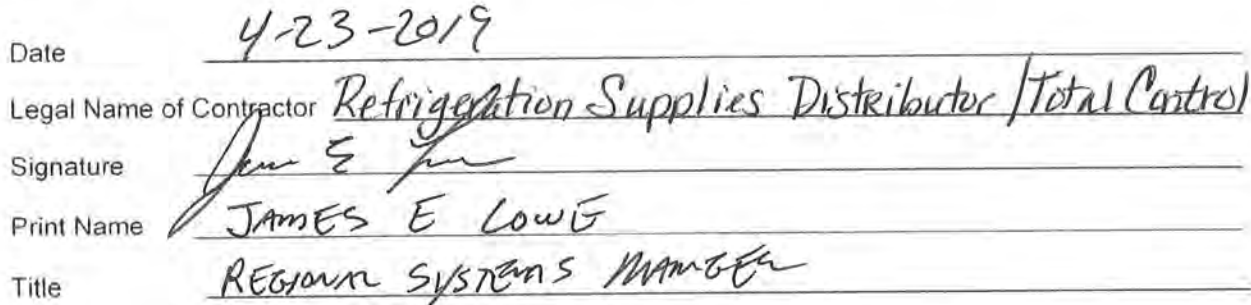 Date 4-23-2019
Legal Name of Contractor Refrigeration Supplies Distributor / Total Control
Signature James E
Print Name JAMES E LOWE
Title REGIONAL SYSTEMS MANAGER